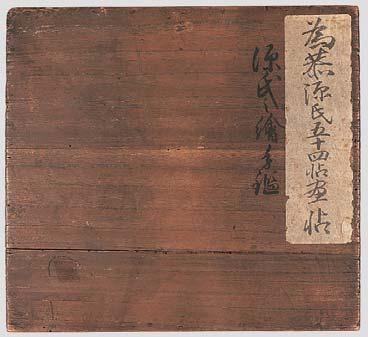 為恭源氏五十四帖画帖
源氏之繪手鑑